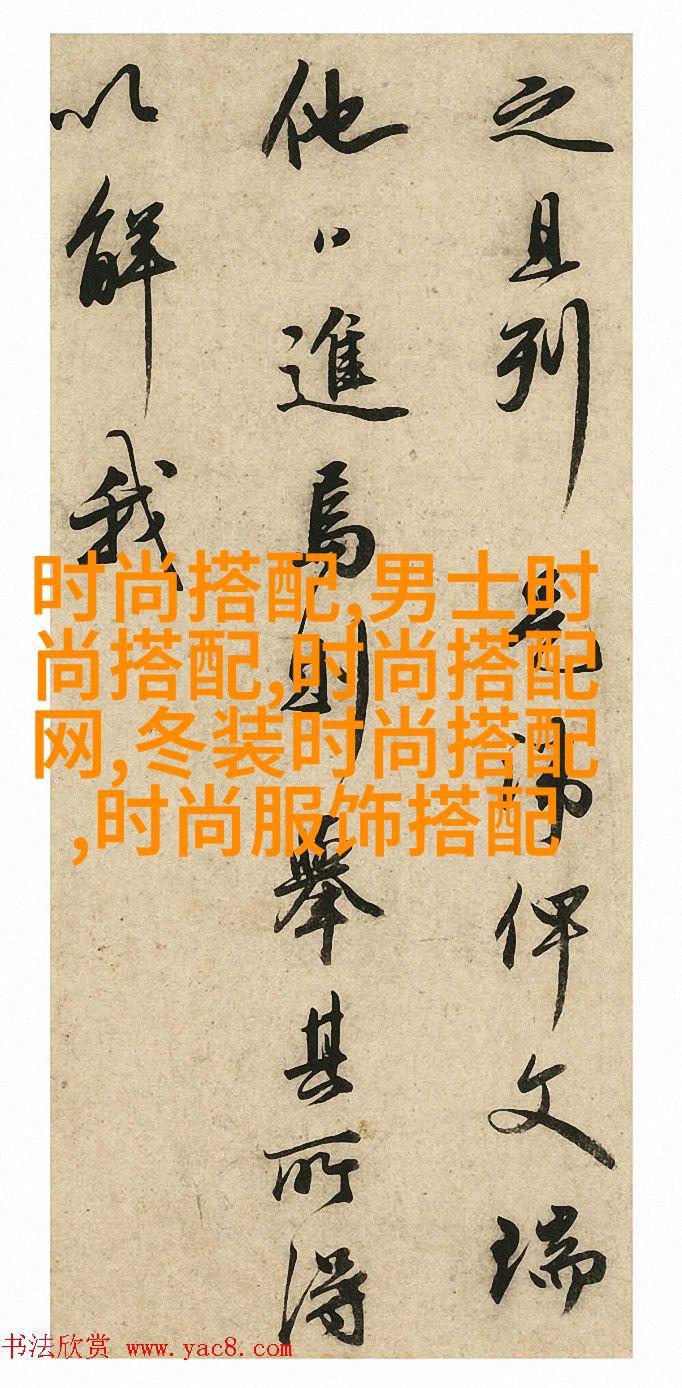 之且列俾文瑞
他進焉則舉其所得
以解我
时尚搭配,男士时
尚搭配,时尚搭配
网,冬装时尚搭配
,时尚服饰搭配
书法欣赏 www.yac8.com